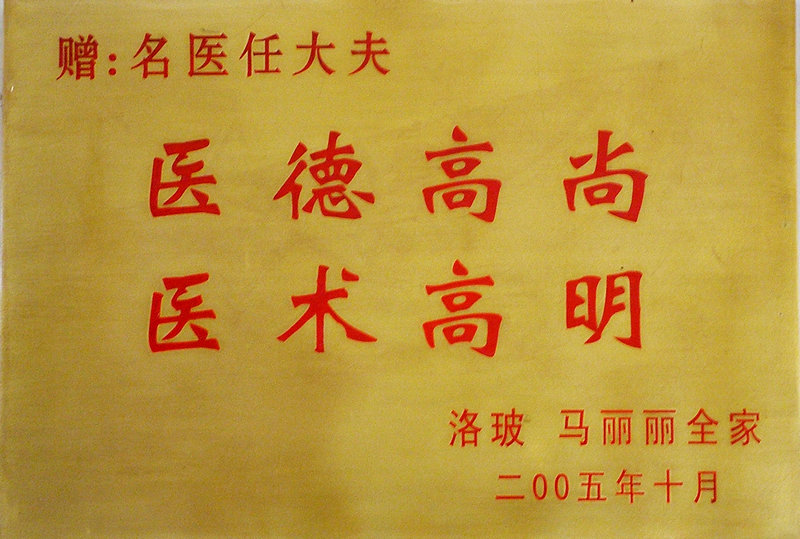 赠:名医任大夫
医德高尚
医术高明
洛玻 马丽丽全家
二00五年十月